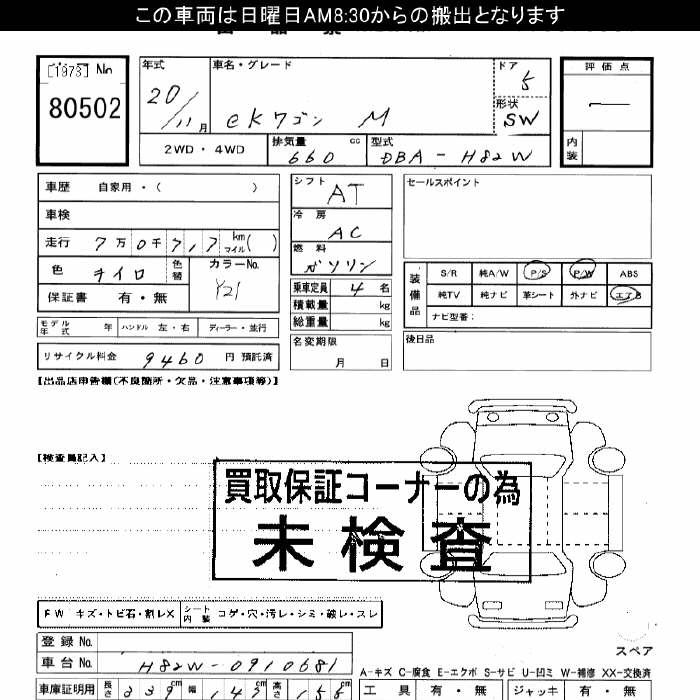 この車両は日曜日AM8:30からの搬出となります
[1973] No
80502
年式
20/11月
車名・グレード
eKワゴン M
ドア
5
形状
SW
評価点
内装
2WD・4WD
排気量 660 cc
型式 DBA-H82W
車歴 自家用・( )
車検
走行 7万0千7,7 km マイル( )
色 キイロ 色替
カラーNo.
Y21
保証書 有・無
シフト
AT
冷房
AC
燃料
ガソリン
乗車定員 4 名
積載量 kg
総重量 kg
名変期限
月 日
セールスポイント
装備品
S/R 純A/W P/S P/W ABS
純TV 純ナビ 革シート 外ナビ エアB
ナビ型番:
後日品
モデル年式 年 ハンドル 左・右 ディーラー・並行
リサイクル料金 9460 円 預託済
【出品店申告欄(不良箇所・欠品・注意事項等)】
【検査員記入】
買取保証コーナーの為
未検査
FW キズ・トビ石・割レX シート内装 コゲ・穴・汚レ・シミ・破レ・スレ
登録No.
車台No. H82W-0910681
スペア
A-キズ C-腐食 E-エクボ S-サビ U-凹ミ W-補修 XX-交換済
車庫証明用 長さ 339cm 幅 147cm 高さ 155cm
工具 有・無 ジャッキ 有・無